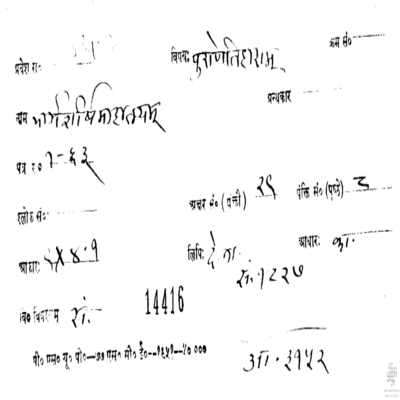 प्रवेश सं० विषय: पुराणेतिहासम् क्रम सं०
नाम मार्गशीर्षमाहात्म्यम् ग्रन्थकार
पत्र सं० १-६३
श्लोक सं० अक्षर सं० (पंक्तौ) २६ पंक्ति सं० (पृष्ठे) ८
आकार: ४.१ लिपि: दे. ना. आधार: का.
सं. १८२७
वि० विवरणम् 14416
पी० एस० यू० पी०--७७ एस० सी० ई०--१९५१--५० ०००